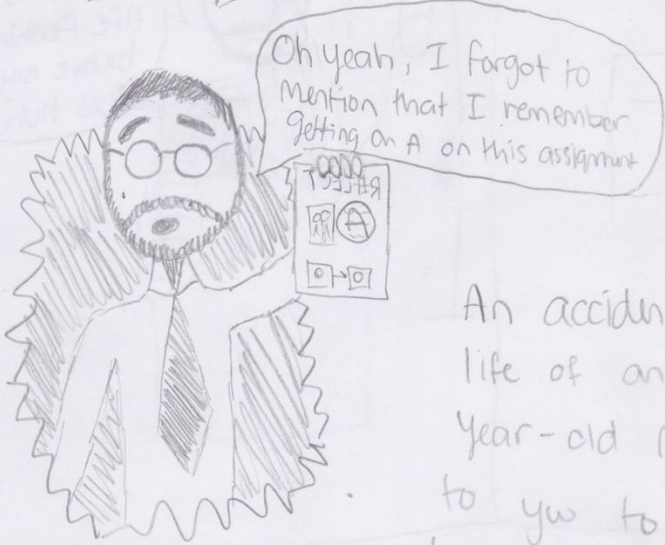 Oh yeah, I forgot to
mention that I remember
getting an A on this assignment
A
An acciden
life of an
year-old
to yw to